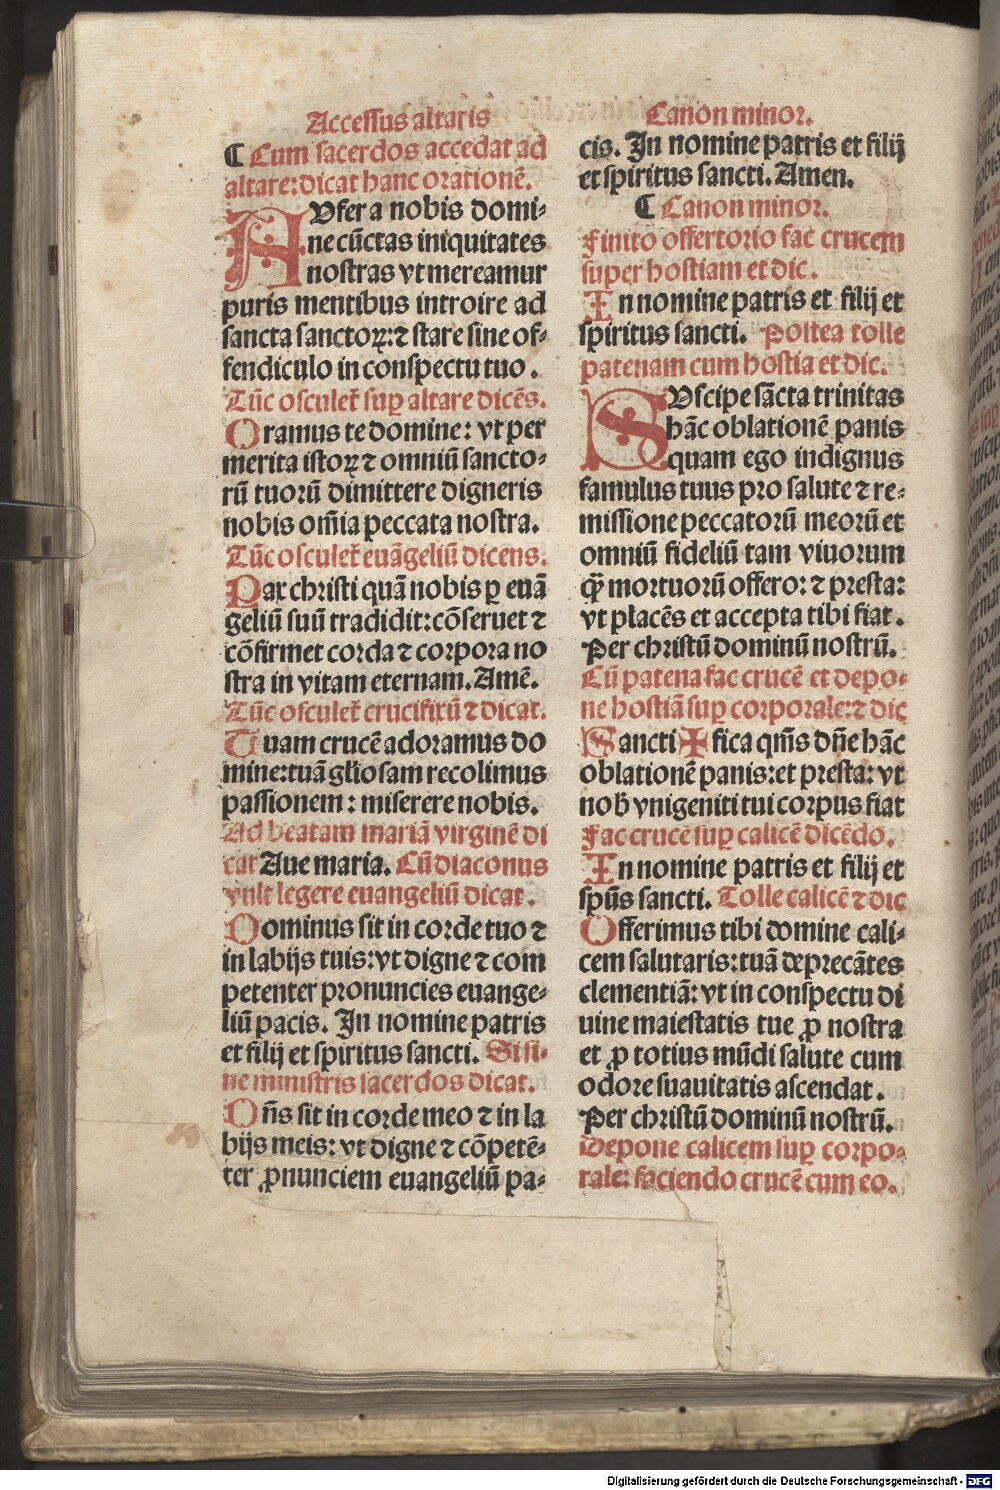 Accessus altaris
¶ Cum sacerdos accedat ad
altare: dicat hanc orationē.
AVfer a nobis domi-
ne cūctas iniquitates
nostras vt mereamur
puris mentibus introire ad
sancta sanctoꝝ: ⁊ stare sine of-
fendiculo in conspectu tuo.
Tūc osculet᷑ suꝑ altare dicēs.
Oramus te domine: vt per
merita istoꝝ ⁊ omniū sancto-
rū tuorū dimittere digneris
nobis om̄ia peccata nostra.
Tūc osculet᷑ euāgeliū dicens.
Pax christi quā nobis ꝑ euā
geliū suū tradidit: cōseruet ⁊
cōfirmet corda ⁊ corpora no
stra in vitam eternam. Amē.
Tūc osculet᷑ crucifixū ⁊ dicat.
Tuam crucē adoramus do
mine: tuā gl̄iosam recolimus
passionem: miserere nobis.
Ad beatam mariā virginē di
cat Aue maria. Cū diaconus
vult legere euangeliū dicat.
Dominus sit in corde tuo ⁊
in labijs tuis: vt digne ⁊ com
petenter pronuncies euange-
liū pacis. In nomine patris
et filij et spiritus sancti. Si si-
ne ministris sacerdos dicat.
Dn̄s sit in corde meo ⁊ in la
bijs meis: vt digne ⁊ cōpetē-
ter ꝓnunciem euangeliū pa-
Canon minor.
cis. In nomine patris et filij
et spiritus sancti. Amen.
¶ Canon minor.
Finito offertorio fac crucem
super hostiam et dic.
In nomine patris et filij et
spiritus sancti. Postea tolle
patenam cum hostia et dic.
SVscipe sācta trinitas
hāc oblationē panis
quam ego indignus
famulus tuus pro salute ⁊ re-
missione peccatorū meorū et
omniū fideliū tam viuorum
q̄ȝ mortuorū offero: ⁊ presta:
vt placēs et accepta tibi fiat.
Per christū dominū nostrū.
Cū patena fac crucē et depo-
ne hostiā suꝑ corporale: ⁊ dic
Sancti ✠ fica qm̄s dn̄e hāc
oblationē panis: et presta: vt
nob̄ vnigeniti tui corpus fiat
Fac crucē suꝑ calicē dicēdo.
In nomine patris et filij et
spūs sancti. Tolle calicē ⁊ dic
Offerimus tibi domine cali-
cem salutaris: tuā deprecātes
clementiā: vt in conspectu di
uine maiestatis tue ꝓ nostra
et ꝓ totius mūdi salute cum
odore suauitatis ascendat.
Per christū dominū nostrū.
Depone calicem suꝑ corpo-
rale: faciendo crucē cum eo.
Digitalisierung gefördert durch die Deutsche Forschungsgemeinschaft - DFG